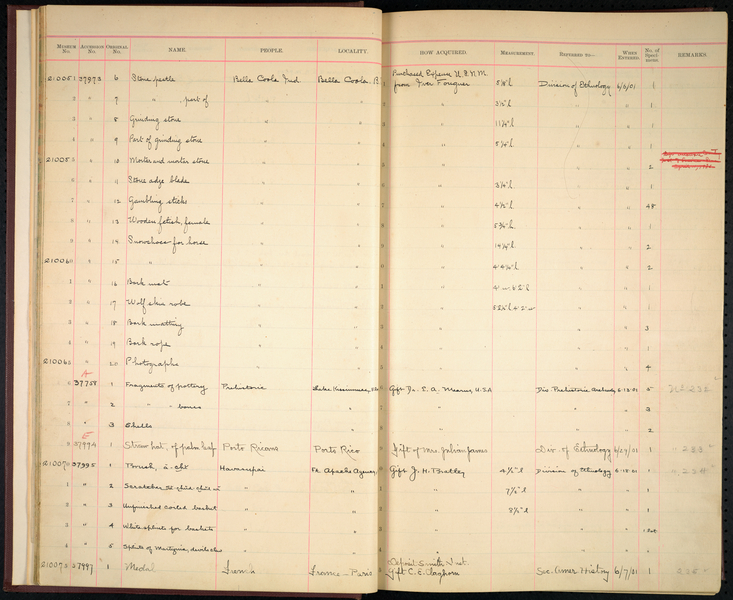 MUSEUM No. ACCESSION No. ORIGINAL No. NAME. PEOPLE. LOCALITY. HOW ACQUIRED. MEASUREMENT. REFERRED TO— WHEN ENTERED. No. of Specimens. REMARKS.
Purchased Expense U.S.N.M.
210051 37973 6 Stone pestle Bella Coola Ind Bella Coola, B. from 5⅞" l Division of Ethnology 6/6/01 1
2 " 7 " , part of " " " 3½" l " " 1
3 " 8 Grinding stone " " " 11¼" l " " 1
4 " 9 Part of grinding stone " " " 5¼" l " " 1
210055 " 10 Mortar and mortar stone " " " " " 2
6 " 11 Stone adze blade " " " 3¼" l " " 1
7 " 12 Gambling sticks " " " 4½" l " " 48
8 " 13 Wooden fetish, female " " " 5¾" l. " " 1
9 " 14 Snowshoes for horse " " " 14¼" l " " 2
210060 " 15 " " " " 4' 4¼" l " " 2
1 " 16 Bark mat " " " " " 1
2 " 17 Wolf skin robe " " " " " 1
3 " 18 Bark matting " " " " " 3
4 " 19 Bark rope " " " " " 1
210065 " 20 Photographs " " " " " 4
A
6 37758 1 Fragments of pottery Prehistoric Lake Kissimmee, Fla Gift Dr. E. A. Mearns, U.S.A Div. Prehistoric 6-18-01 5
7 " 2 " bones " " " " " 3
8 " 3 Shells " " " " " 2
9 37994 1 Straw hat, of palm leaf Porto Ricans Porto Rico Gift of Mrs. Julian James Div. of Ethnology 6/27/01 1
210070 37995 1 Brush, Havasupai Ft. Apache Agency, Gift J. H. Bratley 4½" l Division of Ethnology 6-18-01 1
1 " 2 " " " 7½" l " " 1
2 " 3 Unfinished coiled basket " " " 3½" l " " 1
3 " 4 White splints for baskets " " " " " 1 lot
4 " 5 Splints of Martynia, devil's claw " " " " " "
Deposit Smith. Inst.
210075 37997 1 Medal French France—Paris Gift C. E. Claghorn Sec. Amer History 6/7/01 1